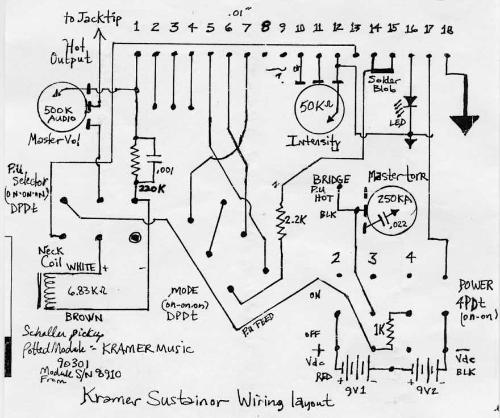 to Jacktip
.01"
1 2 3 4 5 6 7 8 9 10 11 12 13 14 15 16 17 18
Hot
Output
500K
AUDIO
Master Vol
50KΩ
Intensity
Solder
Blob
LED
.001
220K
P.U.
Selector
(ON-ON-ON)
DPDt
BRIDGE
P.U
HOT
BLK
Mastertone
250KA
.022
2.2K
2 3 4
Neck
Coil
WHITE +
6.83KΩ
BROWN -
MODE
(on-on-on)
DPDT
P.U FEED
ON
OFF
POWER
4PDt
(on-on)
1K
+
Vdc
RED
9V1
9V2
Vdc
BLK
Schaller pickup
Potted Module - KRAMER MUSIC
90301
Module S/N 8910
From
Kramer Sustainor Wiring layout